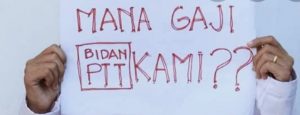 MANA GAJI
BIDAN
PTT KAMI??